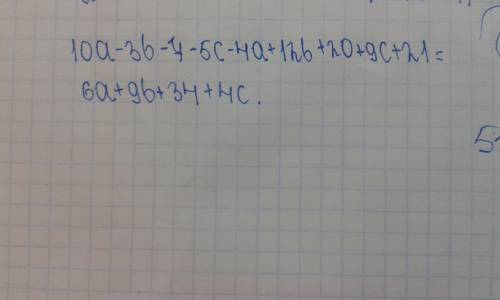 10a-3b-7-5c-4a+12b+20+9c+21=
6a+9b+34+4c.
5